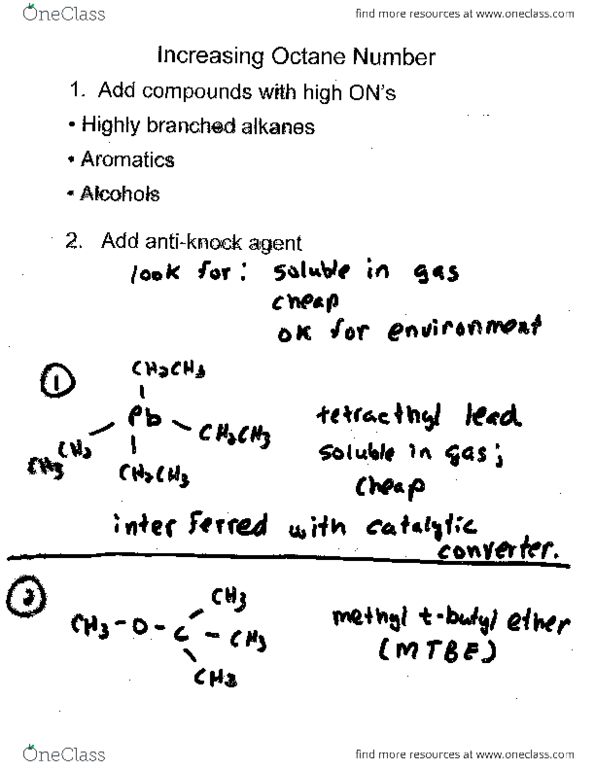 OneClass find more resources at www.oneclass.com
Increasing Octane Number
1. Add compounds with high ON's
• Highly branched alkanes
• Aromatics
• Alcohols
2. Add anti-knock agent
look for: soluble in gas
cheap
ok for environment
1
CH2CH3
Pb
CH2CH3
CH2
CH3
CH2CH3
tetraethyl lead
soluble in gas;
cheap
interferred with catalytic
converter.
2
CH3-O-C-CH3
CH3
CH3
methyl t-butyl ether
(MTBE)
OneClass find more resources at www.oneclass.com